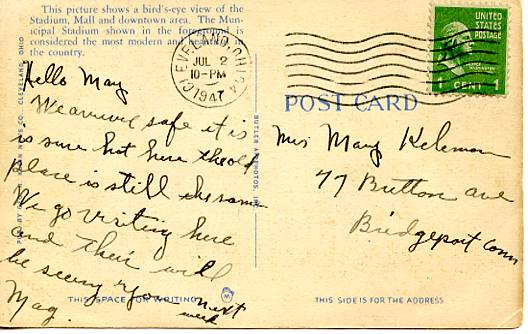 This picture shows a bird's-eye view of the
Stadium, Mall and downtown area. The Mun-
icipal Stadium shown in the foreground is
considered the most modern and beautiful in
the country.
CLEVELAND, OHIO
JUL 2
10-PM
1947
UNITED
STATES
POSTAGE
1 CENT 1
POST CARD
Hello May
We arrived safe it is
is sure hot here the old
place is still the same
We go visiting here
and their will
be seeing you next
week
Mag.
Mrs Mary Keleman
77 Button ave
Bridgeport Conn
CLEVELAND, OHIO
THIS SPACE FOR WRITING
THIS SIDE IS FOR THE ADDRESS